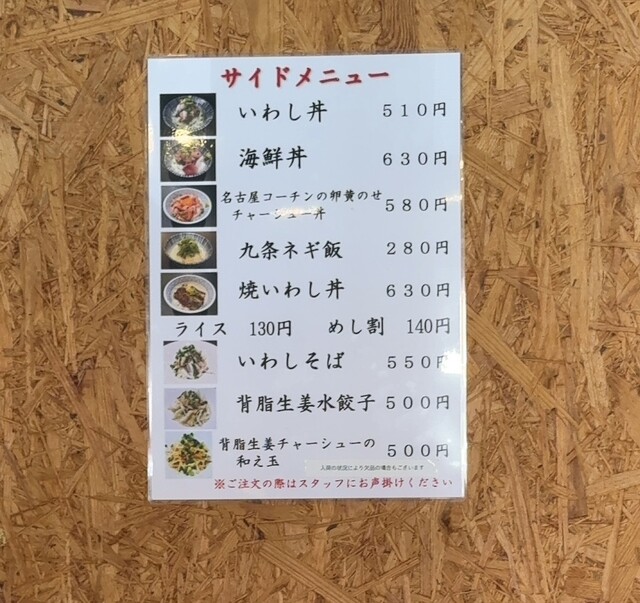 サイドメニュー
いわし丼 510円
海鮮丼 630円
名古屋コーチンの卵黄のせ
チャーシュー丼 580円
九条ネギ飯 280円
焼いわし丼 630円
ライス 130円 めし割 140円
いわしそば 550円
背脂生姜水餃子 500円
背脂生姜チャーシューの
和え玉 500円
入荷の状況により欠品の場合もございます
※ご注文の際はスタッフにお声掛けください